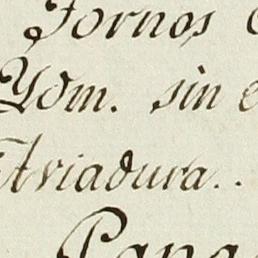 Tornos
Ydm. sin
Atriadura..
Pana